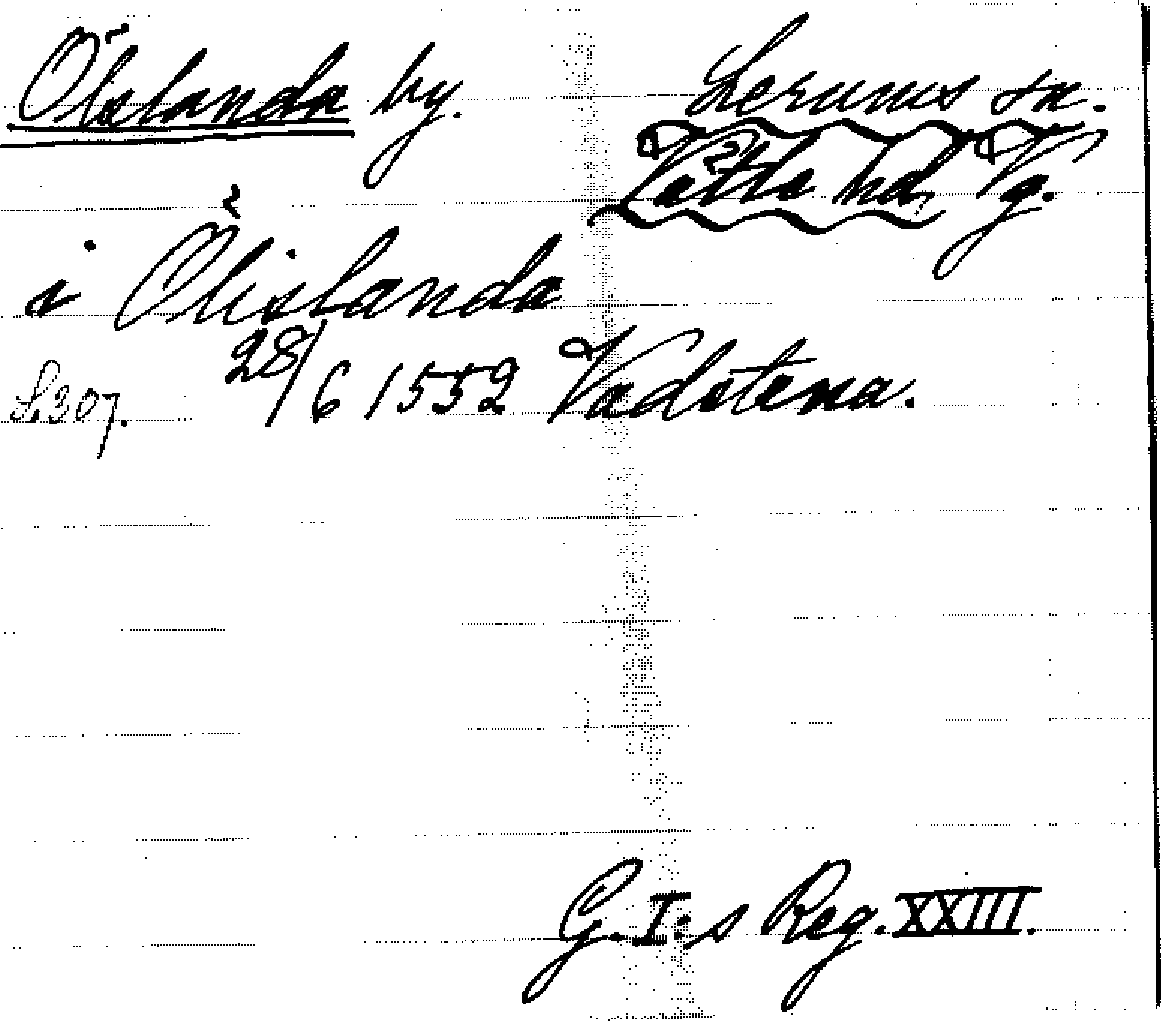 Ölslanda by. Lerums sn.
Vättle hd, Vg.
i Ölislanda
28/6 1552 Vadstena.
S. 307.
G. I:s Reg. XXIII.